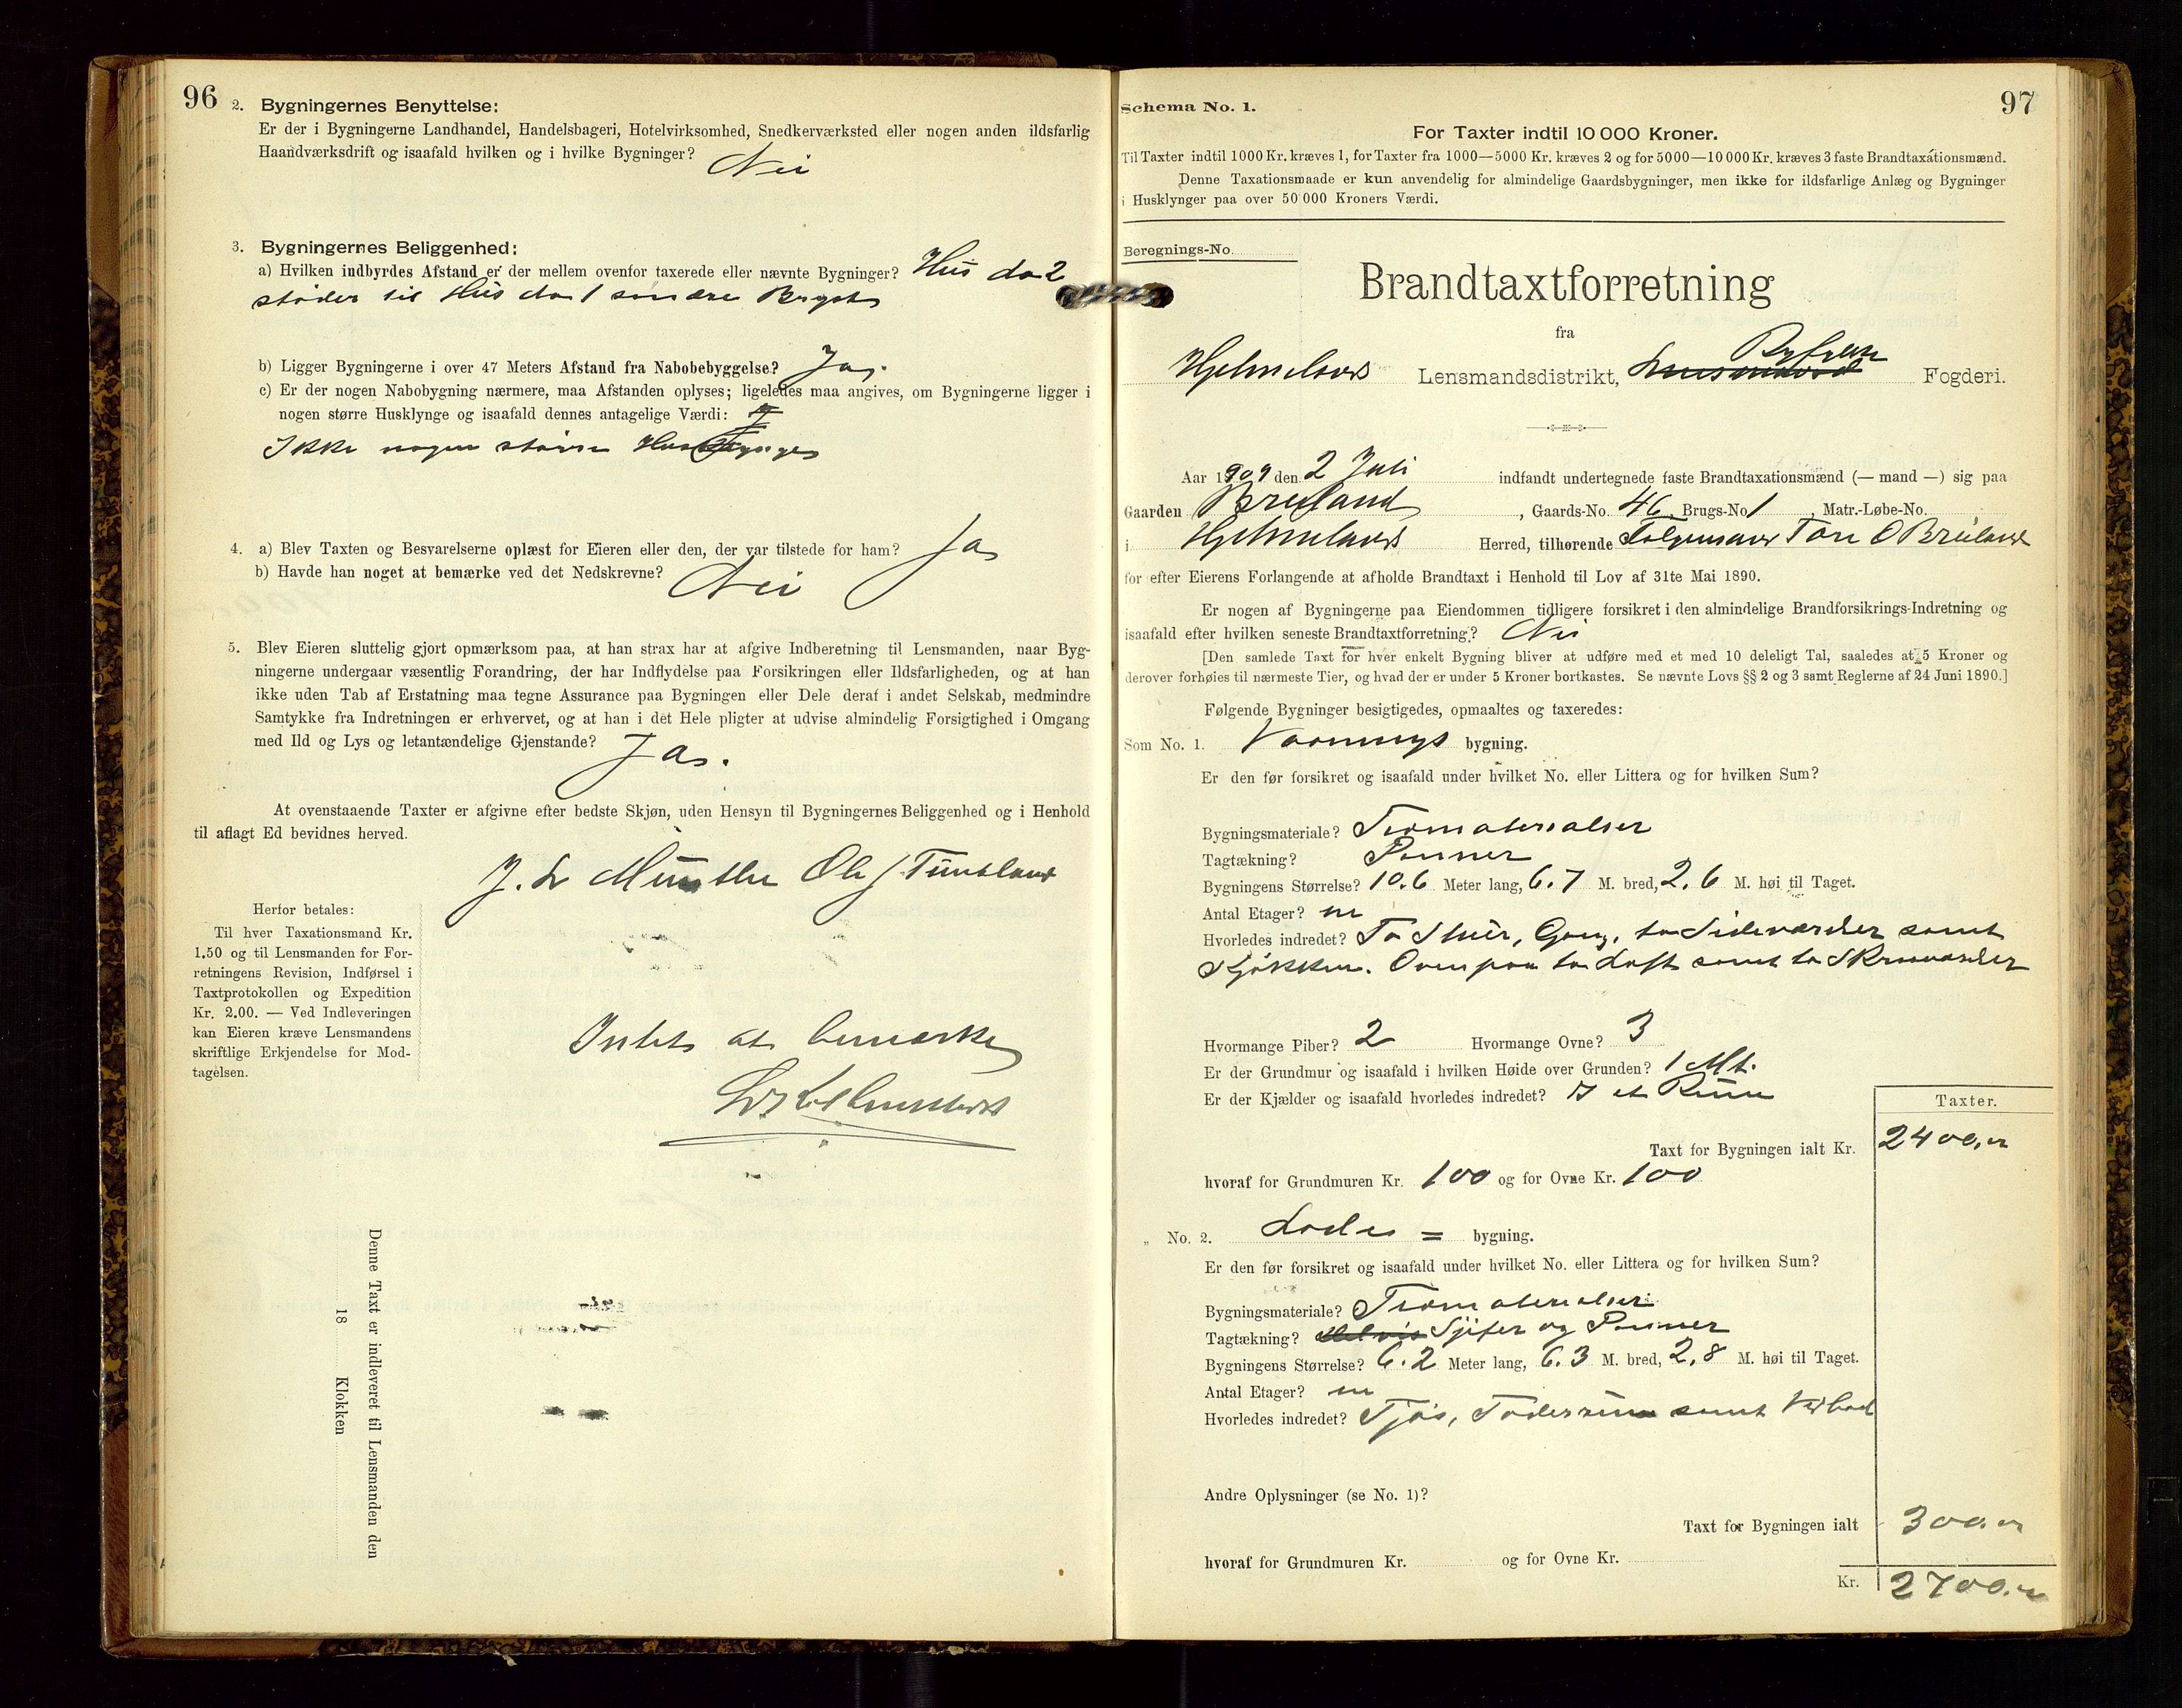 96
2. Bygningernes Benyttelse:
Er der i Bygningerne Landhandel, Handelsbageri, Hotelvirksomhed, Snedkerværksted eller nogen anden ildsfarlig
Haandværksdrift og isaafald hvilken og i hvilke Bygninger? Nei
3. Bygningernes Beliggenhed:
a) Hvilken indbyrdes Afstand er der mellem ovenfor taxerede eller nævnte Bygninger? Hus do 2
støder til Hus do 1
b) Ligger Bygningerne i over 47 Meters Afstand fra Nabobebyggelse? Ja.
c) Er der nogen Nabobygning nærmere, maa Afstanden oplyses; ligeledes maa angives, om Bygningerne ligger i
nogen større Husklynge og isaafald dennes antagelige Værdi:
Ikke nogen større
4. a) Blev Taxten og Besvarelserne oplæst for Eieren eller den, der var tilstede for ham? Ja
b) Havde han noget at bemærke ved det Nedskrevne? Nei
5. Blev Eieren sluttelig gjort opmærksom paa, at han strax har at afgive Indberetning til Lensmanden, naar Byg-
ningerne undergaar væsentlig Forandring, der har Indflydelse paa Forsikringen eller Ildsfarligheden, og at han
ikke uden Tab af Erstatning maa tegne Assurance paa Bygningen eller Dele deraf i andet Selskab, medmindre
Samtykke fra Indretningen er erhvervet, og at han i det Hele pligter at udvise almindelig Forsigtighed i Omgang
med Ild og Lys og letantændelige Gjenstande? Ja.
At ovenstaaende Taxter er afgivne efter bedste Skjøn, uden Hensyn til Bygningernes Beliggenhed og i Henhold
til aflagt Ed bevidnes herved.
Herfor betales:
Til hver Taxationsmand Kr.
1.50 og til Lensmanden for For-
retningens Revision, Indførsel i
Taxtprotokollen og Expedition
Kr. 2.00. — Ved Indleveringen
kan Eieren kræve Lensmandens
skriftlige Erkjendelse for Mod-
tagelsen.
Intet at bemærke
Denne Taxt er indleveret til Lensmanden den
18 Klokken
97
Schema No. 1.
For Taxter indtil 10 000 Kroner.
Til Taxter indtil 1000 Kr. kræves 1, for Taxter fra 1000—5000 Kr. kræves 2 og for 5000—10 000 Kr. kræves 3 faste Brandtaxationsmænd.
Denne Taxationsmaade er kun anvendelig for almindelige Gaardsbygninger, men ikke for ildsfarlige Anlæg og Bygninger
i Husklynger paa over 50 000 Kroners Værdi.
Beregnings-No.
Brandtaxtforretning
fra
Hjelmelands Lensmandsdistrikt, Ryfylke Fogderi.
Aar 1909 den 2 Juli indfandt undertegnede faste Brandtaxationsmænd (— mand —) sig paa
Gaarden Breiland, Gaards-No. 46, Brugs-No 1, Matr.-Løbe-No.
i Hjelmelands Herred, tilhørende Tore O Breiland
for efter Eierens Forlangende at afholde Brandtaxt i Henhold til Lov af 31te Mai 1890.
Er nogen af Bygningerne paa Eiendommen tidligere forsikret i den almindelige Brandforsikrings-Indretning og
isaafald efter hvilken seneste Brandtaxtforretning? Nei
[Den samlede Taxt for hver enkelt Bygning bliver at udføre med et med 10 deleligt Tal, saaledes at 5 Kroner og
derover forhøies til nærmeste Tier, og hvad der er under 5 Kroner bortkastes. Se nævnte Lovs §§ 2 og 3 samt Reglerne af 24 Juni 1890.]
Følgende Bygninger besigtigedes, opmaaltes og taxeredes:
Som No. 1. Vaanings bygning.
Er den før forsikret og isaafald under hvilket No. eller Littera og for hvilken Sum?
Bygningsmateriale? Træmaterialier
Tagtækning? Panner
Bygningens Størrelse? 10.6 Meter lang, 6.7 M. bred, 2.6 M. høi til Taget.
Antal Etager? en
Hvorledes indredet? To Stuer, Gang, to Sideværelser samt
Kjøkken. Ovenpaa to Loft samt to
Hvormange Piber? 2 Hvormange Ovne? 3
Er der Grundmur og isaafald i hvilken Høide over Grunden? 1 Mt.
Er der Kjælder og isaafald hvorledes indredet? I et Rum
Taxter.
Taxt for Bygningen ialt Kr. 2400,
hvoraf for Grundmuren Kr. 100 og for Ovne Kr. 100
„ No. 2. Lade = bygning.
Er den før forsikret og isaafald under hvilket No. eller Littera og for hvilken Sum?
Bygningsmateriale? Træmaterialier
Tagtækning? og Panner
Bygningens Størrelse? 6.2 Meter lang, 6.3 M. bred, 2.8 M. høi til Taget.
Antal Etager? en
Hvorledes indredet? samt
Andre Oplysninger (se No. 1)?
Taxt for Bygningen ialt 300.
hvoraf for Grundmuren Kr. og for Ovne Kr.
Kr. 2700.